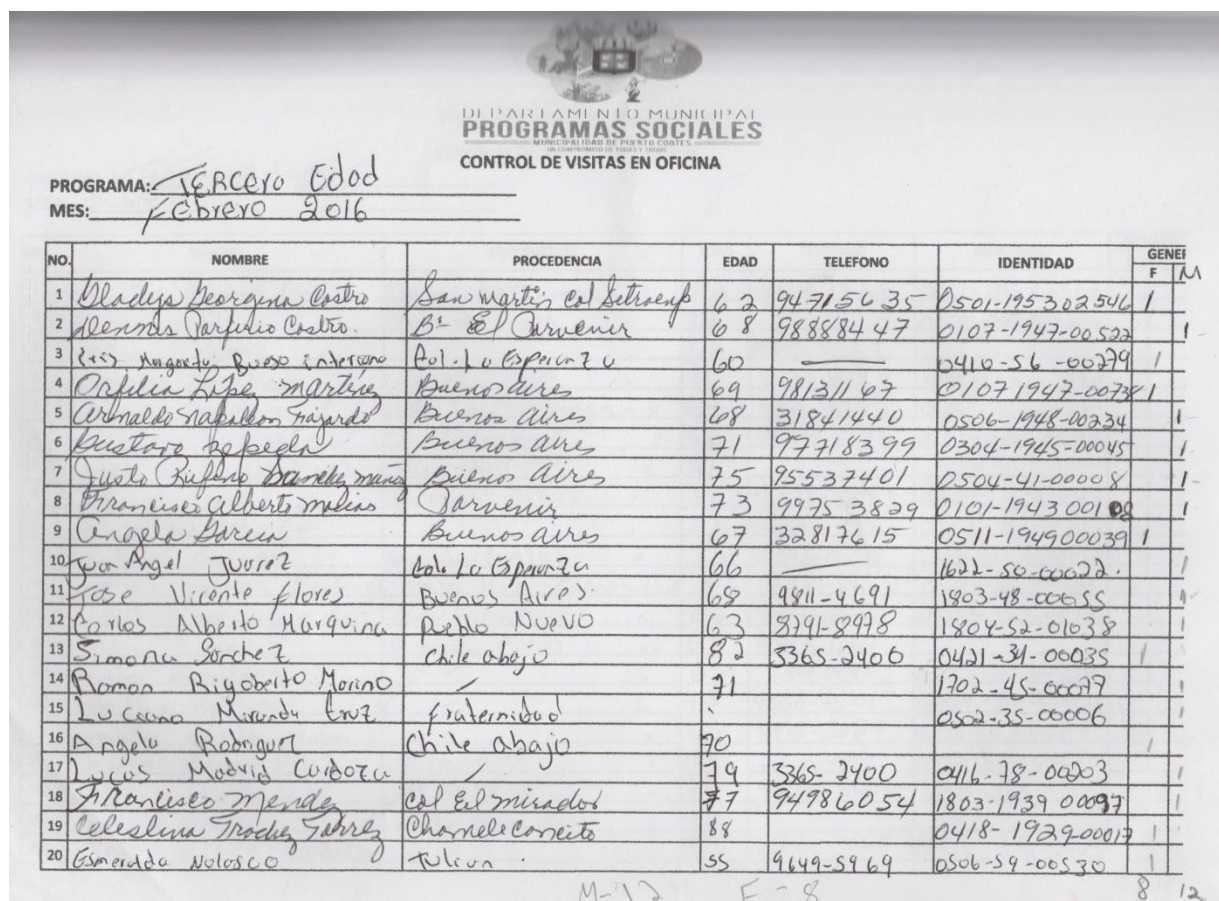 DEPARTAMENTO MUNICIPAL
PROGRAMAS SOCIALES
MUNICIPALIDAD DE PUERTO CORTES
UN COMPROMISO DE TODAS Y TODOS
CONTROL DE VISITAS EN OFICINA
PROGRAMA: TERCERO Edad
MES: Febrero 2016
NO. NOMBRE PROCEDENCIA EDAD TELEFONO IDENTIDAD GENER
F M
1 Gladys Georgina Castro San martin Col 62 94715635 0501-195302546 1
2 Dennis Porfirio Castro. B- El Porvenir 68 98888447 0107-1947-00522 1
3 Margarita Bueso interiano Col. La Esperanza 60 — 0410-56-00279 1
4 Orfilia López martínez Buenos aires 69 98131167 0107 1947-00738 1
5 arnaldo napoleon Fajardo Buenos aires 68 31841440 0506-1948-00234 1
6 Gustavo zepeda Buenos aires 71 97718399 0304-1945-00045 1
7 Justo Rufino Sanchez Buenos aires 75 95537401 0504-41-00008 1
8 Francisco alberto molina Porvenir 73 99753829 0101-1943 001 1
9 angela Garcia Buenos aires 67 32817615 0511-194900039 1
10 Juan Angel Juarez Col. La Esperanza 66 — 1622-50-00022. 1
11 Jose Vicente flores Buenos Aires. 68 9811-4691 1803-48-00055 1
12 Carlos Alberto Marquina Pueblo Nuevo 63 8791-8978 1804-52-01038 1
13 Simona Sanchez Chile abajo 82 3365-2400 0421-34-00035 1
14 Ramon Rigoberto Morino / 71 1702-45-00079 1
15 Luciano Miranda Cruz fraternidad 0502-35-00006 1
16 Angela Rodriguez Chile abajo 70 1
17 Lucas Madrid Cardoza / 79 3365-2400 0416-78-00203 1
18 Francisco Mendez col El mirador 77 94986054 1803-1939 00097 1
19 Celestina Trochez Chameleconcito 88 0418-1929-00017 1
20 Esmeralda Nolasco Tulian. 55 9649-5969 0506-59-00530 1
M-12 F-8 8 12